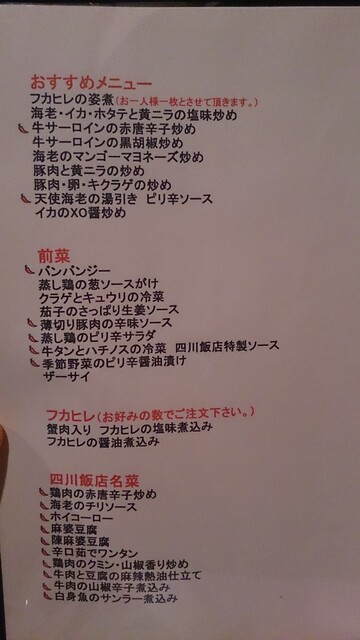 おすすめメニュー
フカヒレの姿煮(お一人様一枚とさせて頂きます。)
海老・イカ・ホタテと黄ニラの塩味炒め
牛サーロインの赤唐辛子炒め
牛サーロインの黒胡椒炒め
海老のマンゴーマヨネーズ炒め
豚肉と黄ニラの炒め
豚肉・卵・キクラゲの炒め
天使海老の湯引き ピリ辛ソース
イカのXO醤炒め
前菜
バンバンジー
蒸し鶏の葱ソースがけ
クラゲとキュウリの冷菜
茄子のさっぱり生姜ソース
薄切り豚肉の辛味ソース
蒸し鶏のピリ辛サラダ
牛タンとハチノスの冷菜 四川飯店特製ソース
季節野菜のピリ辛醤油漬け
ザーサイ
フカヒレ(お好みの数でご注文下さい。)
蟹肉入り フカヒレの塩味煮込み
フカヒレの醤油煮込み
四川飯店名菜
鶏肉の赤唐辛子炒め
海老のチリソース
ホイコーロー
麻婆豆腐
陳麻婆豆腐
辛口茹でワンタン
鶏肉のクミン・山椒香り炒め
牛肉と豆腐の麻辣熱油仕立て
牛肉の山椒辛子煮込み
白身魚のサンラー煮込み